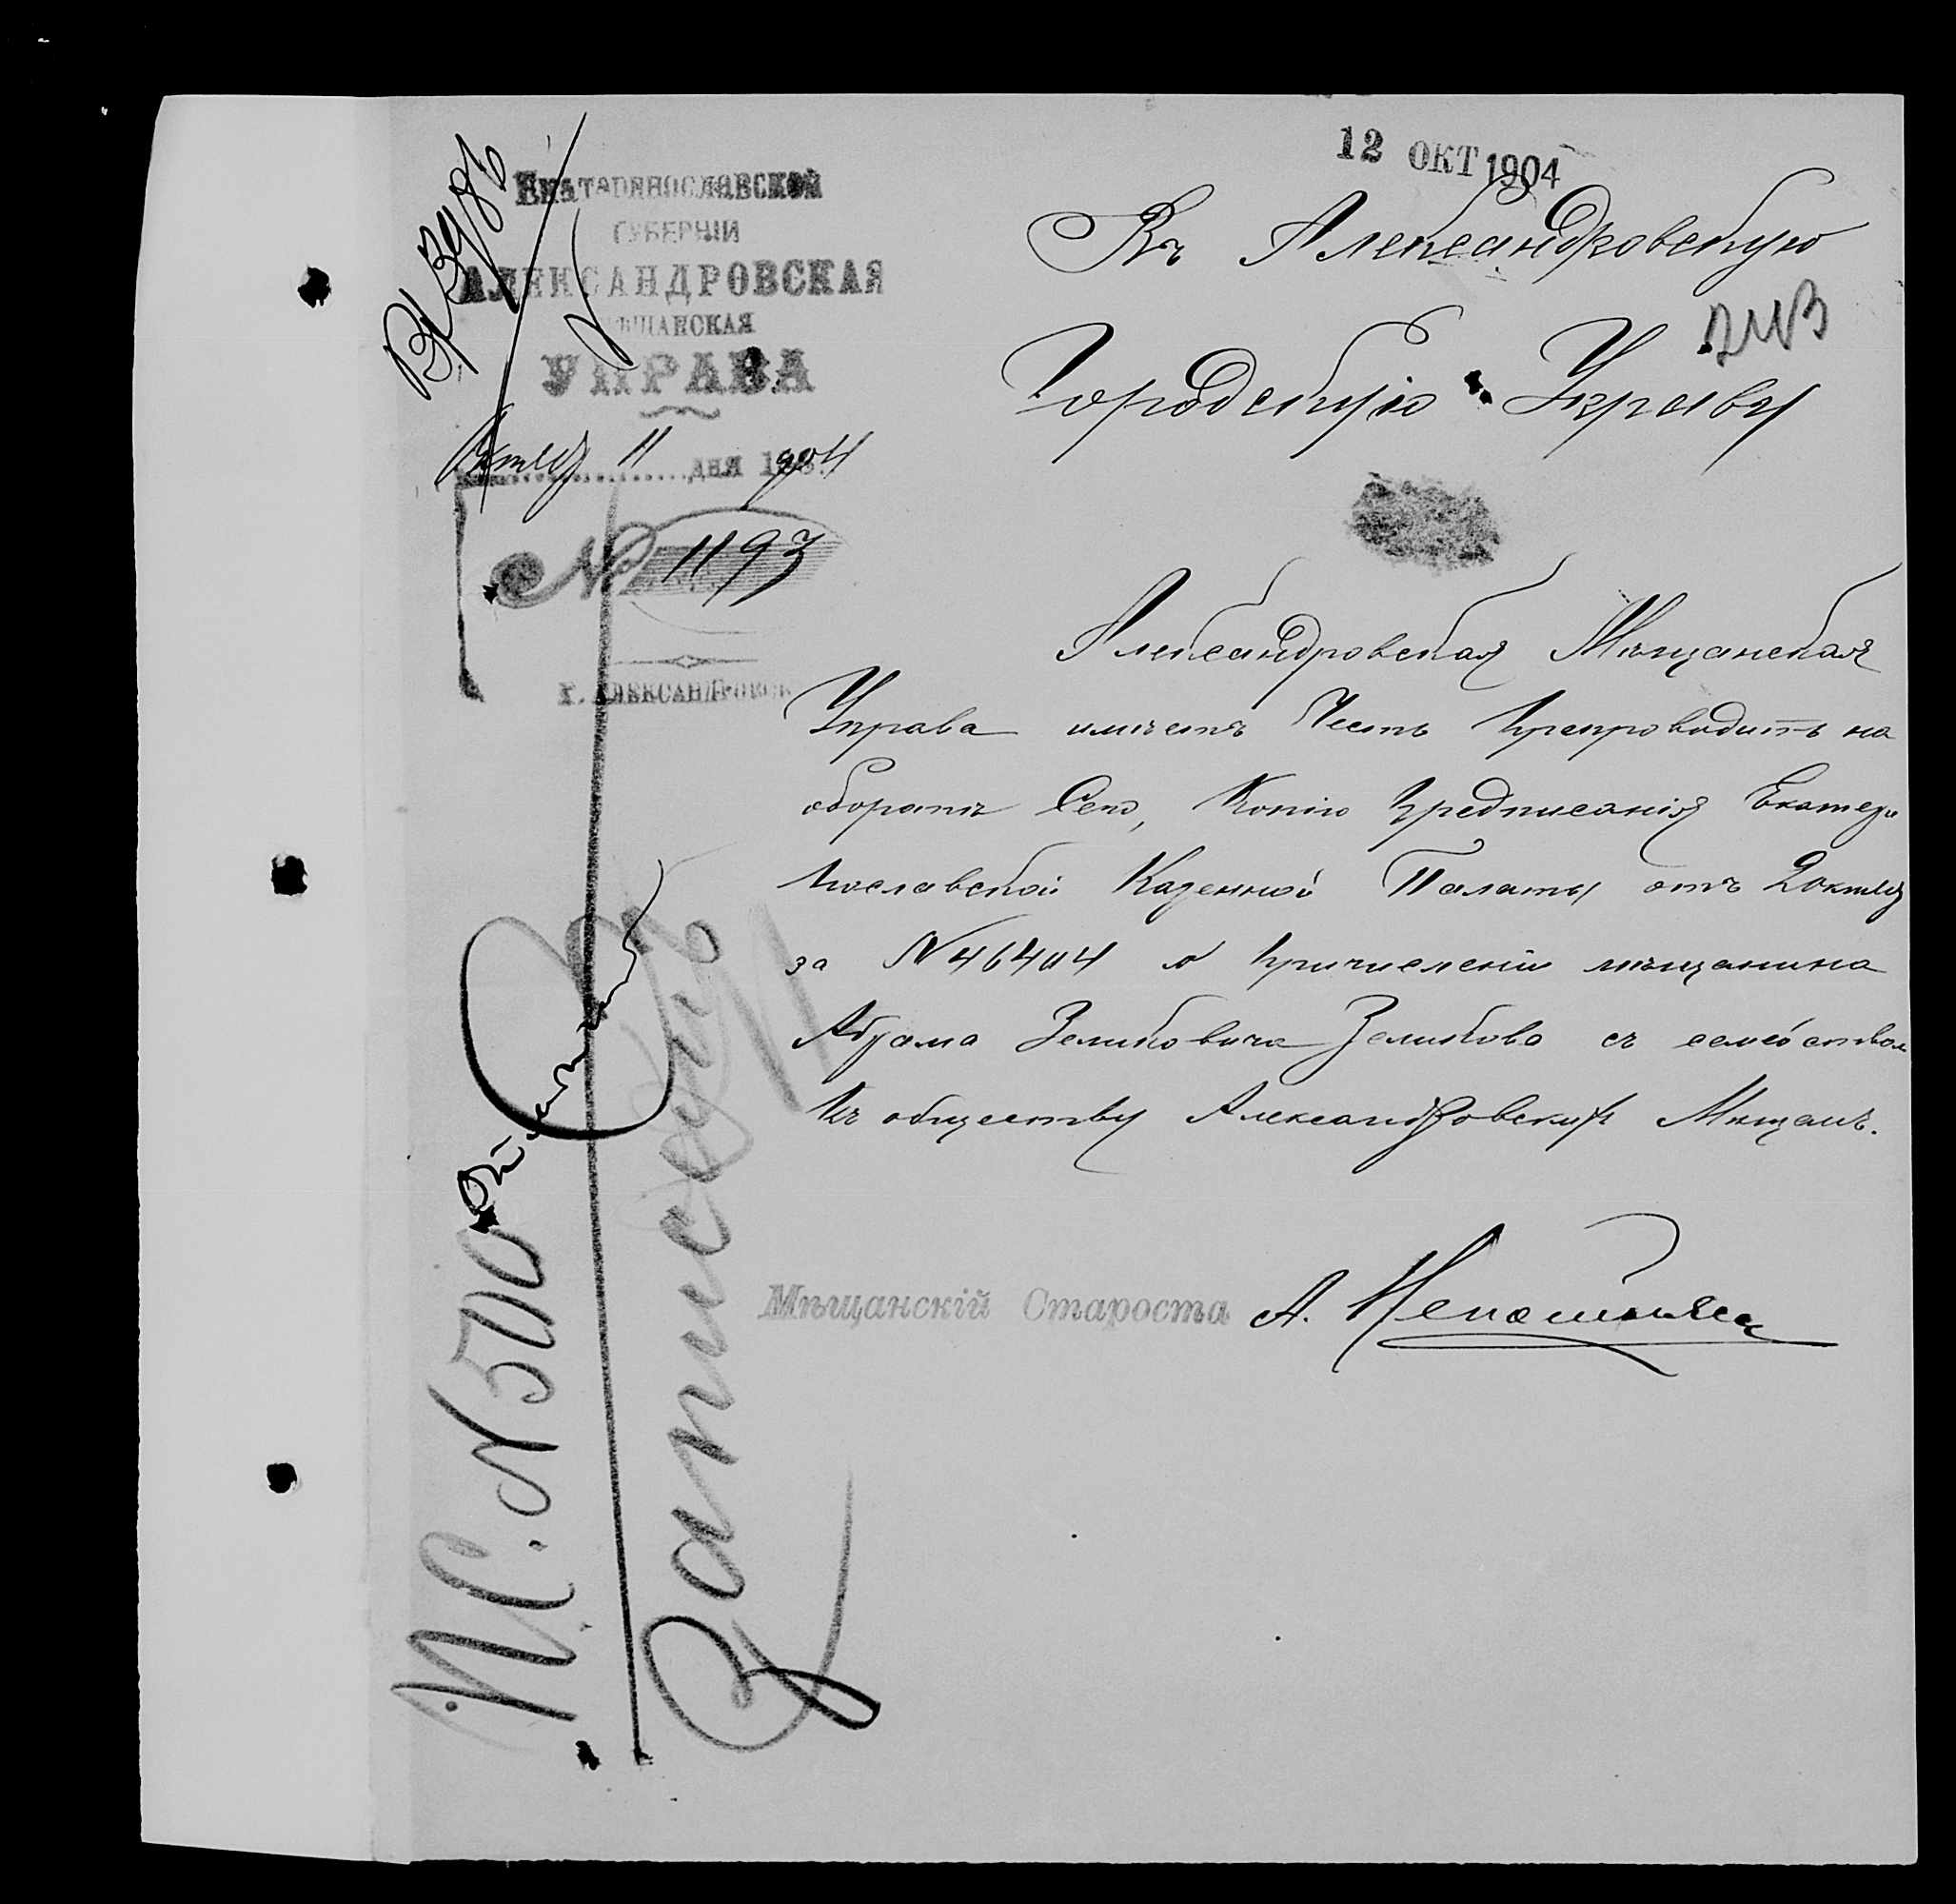 12 ОКТ 1904
Екатеринославской
губерніи
АЛЕКСАНДРОВСКАЯ
мѣщанская
УПРАВА
11 дня 1904
№ 1193
г. Александровскъ
Въ Александровскую
Городскую Управу
Александровская Мѣщанская
Управа имѣетъ Честь Препроводить на
оборотѣ Сего, Копію Предписанія Екатери
нославской Казенной Палаты отъ 2 октяб
за № 46404 о причисленіи мѣщанина
Абрама Зеликовича Зеликова съ семействомъ
къ обществу Александровскихъ Мѣщанъ.
Мѣщанскій Староста А.
М.С. № 500
Записку